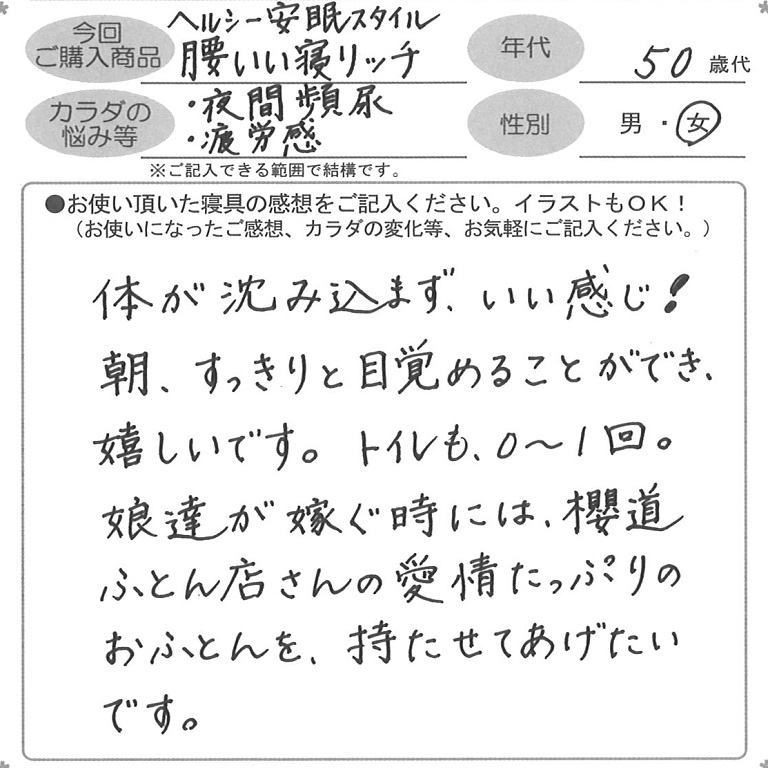 今回
ご購入商品
ヘルシー安眠スタイル
腰いい寝リッチ
年代
50 歳代
カラダの
悩み等
・夜間頻尿
・疲労感
性別
男・女
※ご記入できる範囲で結構です。
●お使い頂いた寝具の感想をご記入ください。イラストもOK！
（お使いになったご感想、カラダの変化等、お気軽にご記入ください。）
体が沈み込まず、いい感じ！
朝、すっきりと目覚めることができ、
嬉しいです。トイレも、0〜1回。
娘達が嫁ぐ時には、櫻道
ふとん店さんの愛情たっぷりの
おふとんを、持たせてあげたい
です。